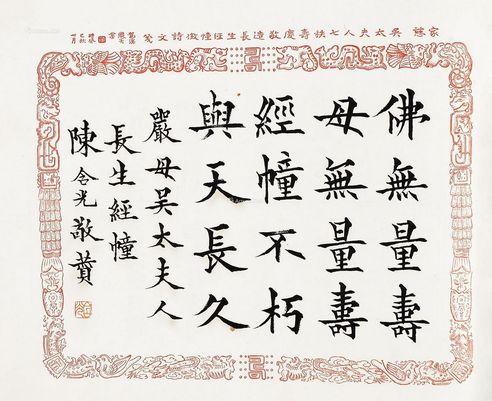 家慈 吳太夫人七秩壽慶敬造長生經幢徵詩文箋
佛無量壽
母無量壽
經幢不朽
與天長久
嚴母吳太夫人
長生經幢
陳含光敬贊